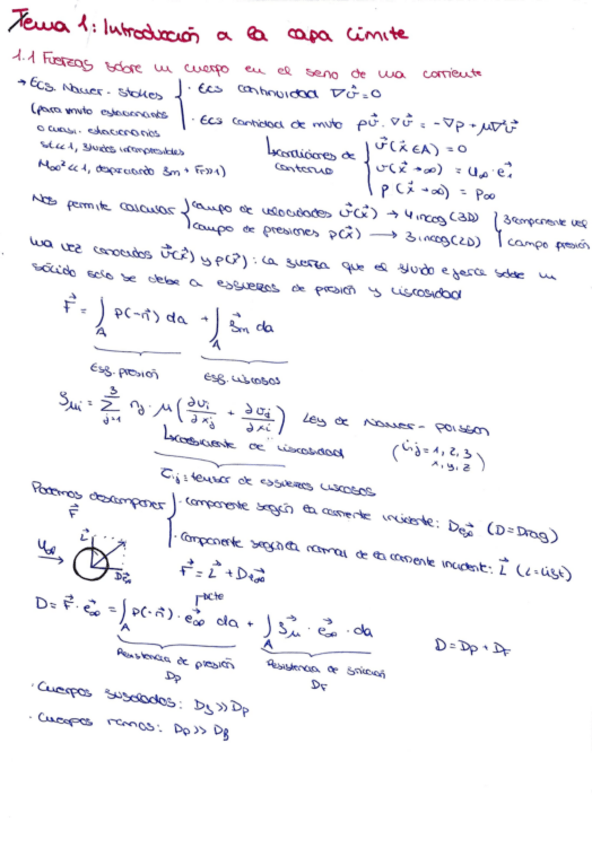 Tema 1: Introducción a la capa límite
1.1 Fuerzas sobre un cuerpo en el seno de una corriente
→ Ecs. Navier-Stokes { · Ecs continuidad ∇v⃗ = 0
(para mvto estacionario
o cuasi-estacionarios
St<<1, fluidos incompresibles
M∞²<<1, despreciando fm + Fr>>1)
· Ecs cantidad de mvto ρv⃗·∇v⃗ = -∇p + μ∇²v⃗
↳ condiciones de contorno { v⃗(x⃗∈A) = 0
v⃗(x⃗→∞) = U∞·e⃗
p(x⃗→∞) = p∞
Nos permite calcular { campo de velocidades v⃗(x⃗) → 4 incog (3D) { 3 componente vel
campo de presiones p(x⃗) → 3 incog (2D) { campo presión
una vez conocidos v⃗(x⃗) y p(x⃗): la fuerza que el fluido ejerce sobre un
sólido solo se debe a esfuerzos de presión y viscosidad
F⃗ = ∫_A p(-n⃗) da + ∫_A f⃗m da
Esf. presión Esf. viscosos
fμi = Σ_{j=1}^{3} nj·μ(∂vi/∂xj + ∂vj/∂xi) Ley de Navier-Poisson
↳ coeficiente de viscosidad (i,j = 1, 2, 3
x, y, z)
τij = tensor de esfuerzos viscosos
Podemos descomponer F⃗ { · componente según la corriente incidente: De⃗∞ (D=Drag)
· componente según la normal de la corriente incidente: L⃗ (L=Lift)
U∞ L⃗ De⃗∞
F⃗ = L⃗ + De⃗∞
cte
D = F⃗·e⃗∞ = ∫_A p(-n⃗)·e⃗∞ da + ∫_A f⃗μ·e⃗∞·da D = Dp + Df
Resistencia de presión Resistencia de fricción
Dp Df
· Cuerpos fuselados: Df >> Dp
· Cuerpos romos: Dp >> Df